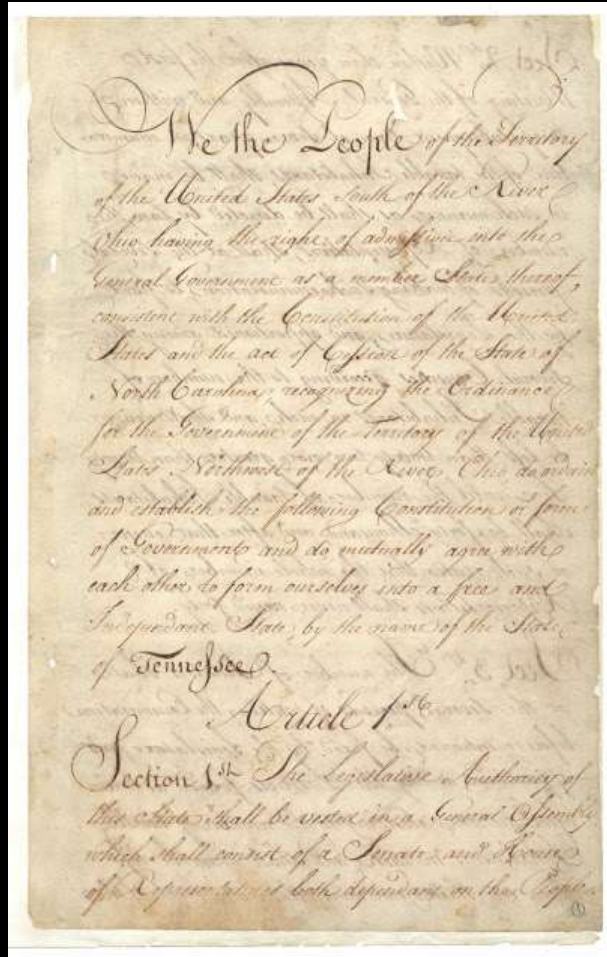 We the People of the Territory
of the United States South of the River
Ohio having the right of admission into the
General Government as a member State thereof,
consistent with the Constitution of the United
States and the act of Cession of the State of
North Carolina, recognizing the Ordinance
for the Government of the Territory of the United
States Northwest of the River Ohio do ordain
and establish the following Constitution or form
of Government and do mutually agree with
each other to form ourselves into a free and
Independant State, by the name of the State
of Tennessee.
Article 1st
Section 1st The Legislative Authority of
this State shall be vested in a General Assembly
which shall consist of a Senate and House
of Representatives both dependant on the People